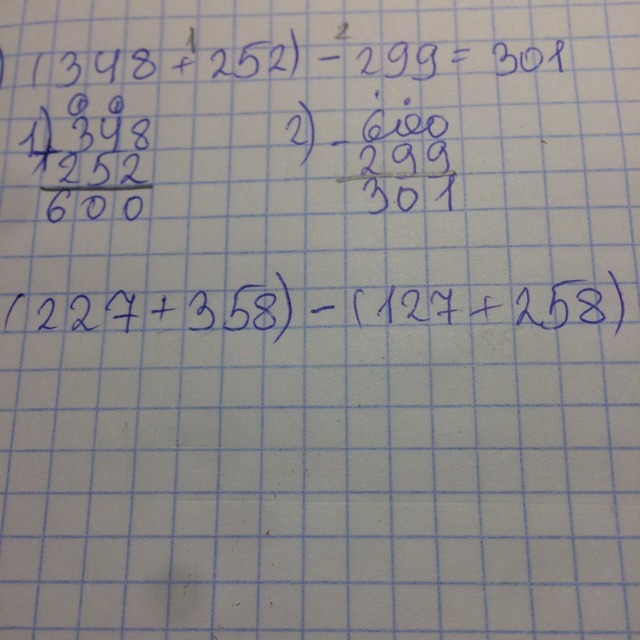 ) (348 + 252) - 299 = 301
1 2
1) 348 2) - 600
+ 252 299
600 301
(227 + 358) - (127 + 258)